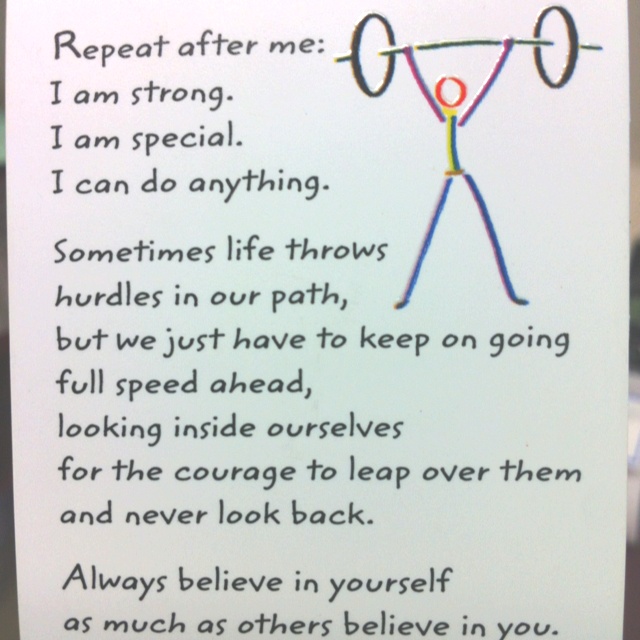 Repeat after me:
I am strong.
I am special.
I can do anything.
Sometimes life throws
hurdles in our path,
but we just have to keep on going
full speed ahead,
looking inside ourselves
for the courage to leap over them
and never look back.
Always believe in yourself
as much as others believe in you.